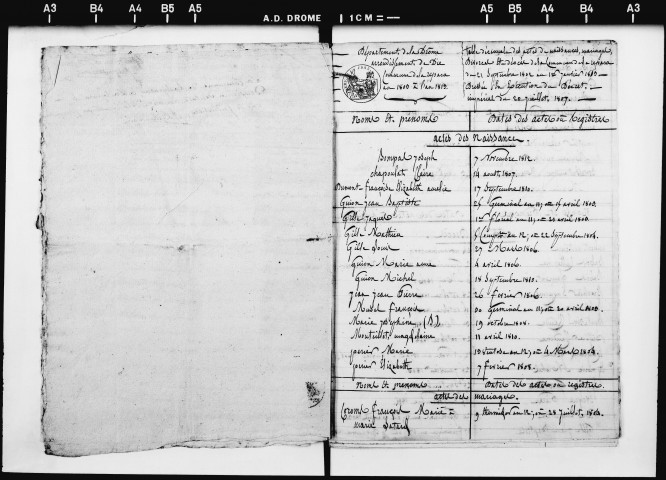 A3 B4 A4 B5 A5 A.D. DROME 1CM = A5 B5 A4 B4 A3
Département de la Drôme
arrondissement de Die
Commune de
table décennale des actes de naissances, mariages,
Divorces et décès de la Commune de
du 21 Septembre 1802 au 1er janvier 1813
Dressée en Exécution du Décret
impérial du 20 juillet 1807.
Noms et prenoms Dates des actes ou Registre
actes des Naissance.
Bompar Joseph 7 Novembre 1812.
Claire 14 aoust 1807.
françoise Elizabeth amelie 17 Septembre 1810.
Guion jean Baptiste 25 Germinal an 11, ou 15 avril 1803.
Gille jaques 1er floréal an 11, ou 20 avril 1803.
Gille Mathieu 5 Compre an 12, ou 22 Septembre 1804.
Gille Louis 29 Mars 1806.
Guion Marie anne 4 avril 1806.
Guion Michel 18 Septembre 1810.
jean jean Pierre 26 fevrier 1806.
Morel françois 30 Germinal an 11, ou 20 avril 1803.
Marie josephine (B.) 19 octobre 1808.
Monteillet magdelaine 11 avril 1810.
Marie 13 ventose an 12, ou 4 Mars 1804.
Elizabeth 7 fevrier 1808.
Noms et prenoms Dates des actes ou registre.
actes des mariages.
françois Marie = 9 thermidor an 12, ou 28 juillet 1804.
marie